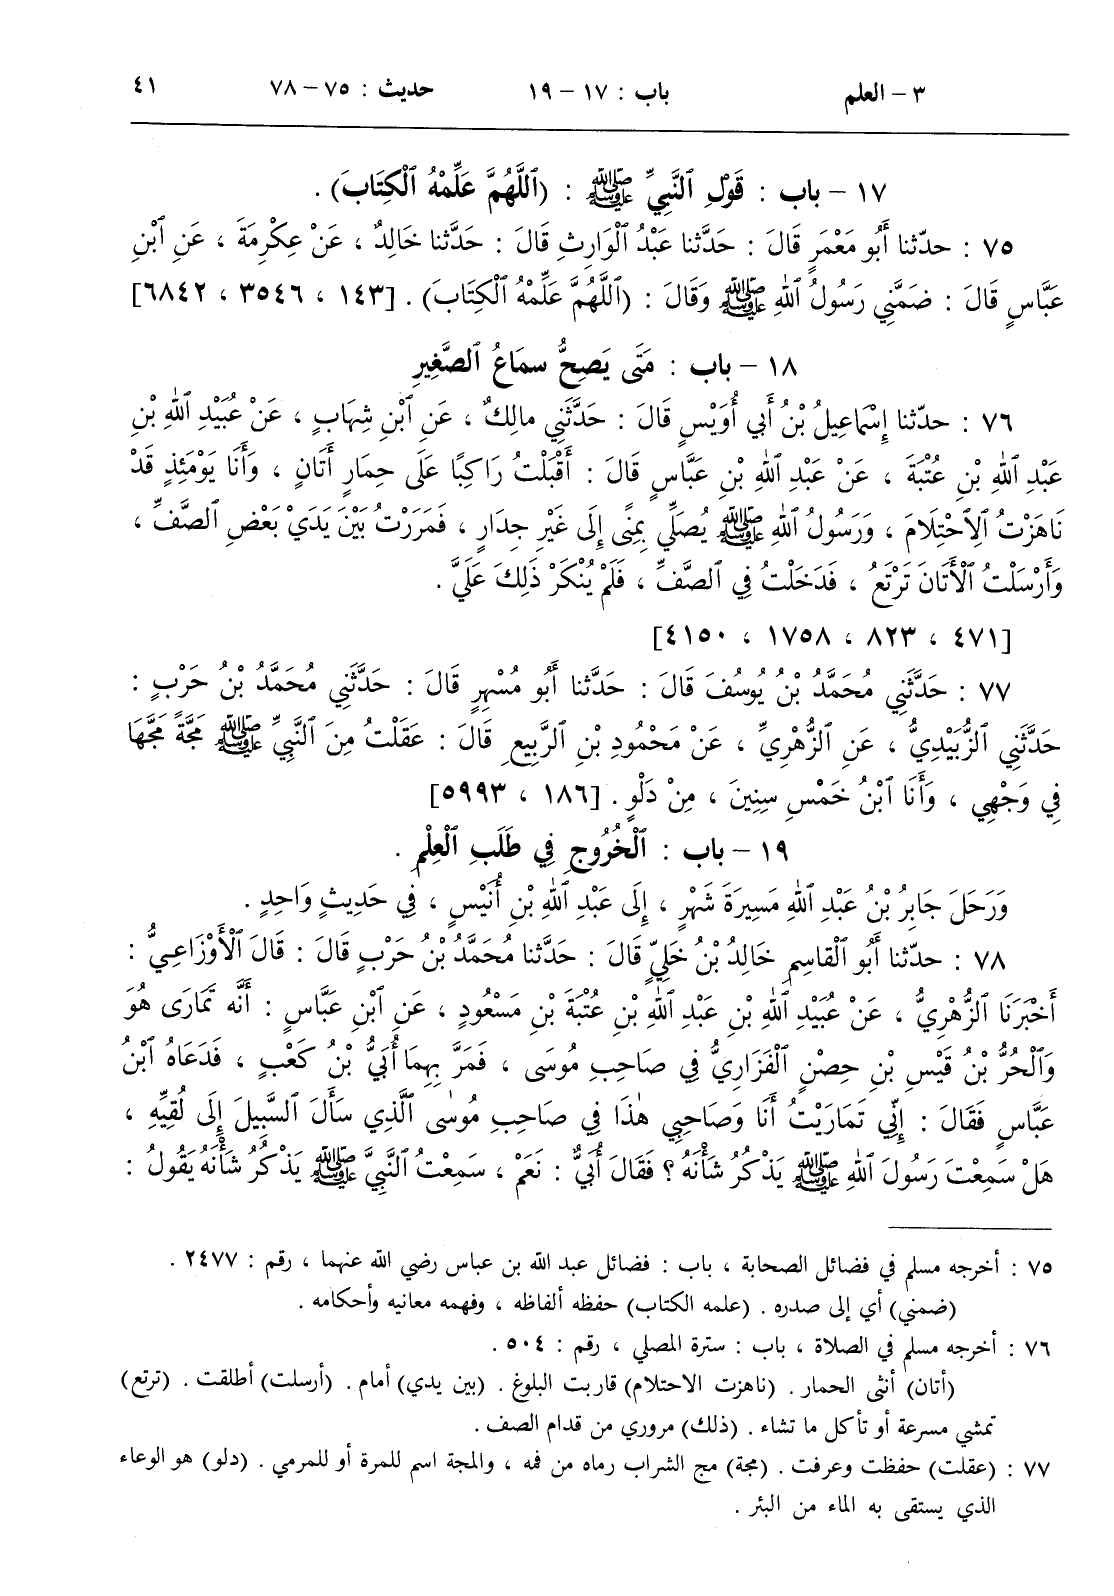 ٣ – العلم باب : ١٧ – ١٩ حديث : ٧٥ – ٧٨ ٤١
١٧ – باب : قَوْلِ ٱلنَّبِيِّ ﷺ : (ٱللَّهُمَّ عَلِّمْهُ ٱلْكِتَابَ) .
٧٥ : حدّثنا أَبُو مَعْمَرٍ قَالَ : حَدَّثنا عَبْدُ ٱلْوَارِثِ قَالَ : حَدَّثنا خَالِدٌ ، عَنْ عِكْرِمَةَ ، عَنِ ٱبْنِ
عَبَّاسٍ قَالَ : ضَمَّنِي رَسُولُ ٱللهِ ﷺ وَقَالَ : (ٱللَّهُمَّ عَلِّمْهُ ٱلْكِتَابَ) . [١٤٣ ، ٣٥٤٦ ، ٦٨٤٢]
١٨ – باب : مَتَى يَصِحُّ سمَاعُ ٱلصَّغِيرِ
٧٦ : حدّثنا إِسْمَاعِيلُ بْنُ أَبي أُوَيْسٍ قَالَ : حَدَّثَنِي مالِكٌ ، عَنِ ٱبْنِ شِهَابٍ ، عَنْ عُبَيْدِ ٱللهِ بْنِ
عَبْدِ ٱللهِ بْنِ عُتْبَةَ ، عَنْ عَبْدِ ٱللهِ بْنِ عَبَّاسٍ قَالَ : أَقْبَلْتُ رَاكِبًا عَلَى حِمَارٍ أَتَانٍ ، وَأَنا يَوْمَئِذٍ قَدْ
نَاهَزْتُ ٱلِٱحْتِلَامَ ، وَرَسُولُ ٱللهِ ﷺ يُصَلِّي بِمِنًى إِلَى غَيْرِ جِدَارٍ ، فَمَرَرْتُ بَيْنَ يَدَيْ بَعْضِ ٱلصَّفِّ ،
وَأَرْسَلْتُ ٱلْأَتَانَ تَرْتَعُ ، فَدَخَلْتُ فِي ٱلصَّفِّ ، فَلَمْ يُنْكَرْ ذَلِكَ عَلَيَّ .
[٤٧١ ، ٨٢٣ ، ١٧٥٨ ، ٤١٥٠]
٧٧ : حَدَّثَنِي مُحَمَّدُ بْنُ يُوسُفَ قَالَ : حَدَّثنا أَبُو مُسْهِرٍ قَالَ : حَدَّثَنِي مُحَمَّدُ بْنُ حَرْبٍ :
حَدَّثَنِي ٱلزُّبَيْدِيُّ ، عَنِ ٱلزُّهْرِيِّ ، عَنْ مَحْمُودِ بْنِ ٱلرَّبِيعِ قَالَ : عَقَلْتُ مِنَ ٱلنَّبِيِّ ﷺ مَجَّةً مَجَّهَا
فِي وَجْهِي ، وَأَنَا ٱبْنُ خَمْسِ سِنِينَ ، مِنْ دَلْوٍ . [١٨٦ ، ٥٩٩٣]
١٩ – باب : ٱلْخُرُوجِ فِي طَلَبِ ٱلْعِلْمِ .
وَرَحَلَ جَابِرُ بْنُ عَبْدِ ٱللهِ مَسِيرَةَ شَهْرٍ ، إِلَى عَبْدِ ٱللهِ بْنِ أُنَيْسٍ ، فِي حَدِيثٍ وَاحِدٍ .
٧٨ : حدّثنا أَبُو ٱلْقَاسِمِ خَالِدُ بْنُ خَلِيٍّ قَالَ : حَدَّثنا مُحَمَّدُ بْنُ حَرْبٍ قَالَ : قَالَ ٱلْأَوْزَاعِيُّ :
أَخْبَرَنَا ٱلزُّهْرِيُّ ، عَنْ عُبَيْدِ ٱللهِ بْنِ عَبْدِ ٱللهِ بْنِ عُتْبَةَ بْنِ مَسْعُودٍ ، عَنِ ٱبْنِ عَبَّاسٍ : أَنَّه تَمَارَى هُوَ
وَٱلْحُرُّ بْنُ قَيْسِ بْنِ حِصْنٍ ٱلْفَزَارِيُّ فِي صَاحِبِ مُوسَى ، فَمَرَّ بِهِمَا أُبَيُّ بْنُ كَعْبٍ ، فَدَعَاهُ ٱبْنُ
عَبَّاسٍ فَقَالَ : إِنِّي تَمَارَيْتُ أَنَا وَصَاحِبِي هٰذَا فِي صَاحِبِ مُوسٰى ٱلَّذِي سَأَلَ ٱلسَّبِيلَ إِلَى لُقِيِّهِ ،
هَلْ سَمِعْتَ رَسُولَ ٱللهِ ﷺ يَذْكُرُ شَأْنَهُ ؟ فَقَالَ أُبَيٌّ : نَعَمْ ، سَمِعْتُ ٱلنَّبِيَّ ﷺ يَذْكُرُ شَأْنَهُ يَقُولُ :
٧٥ : أخرجه مسلم في فضائل الصحابة ، باب : فضائل عبد الله بن عباس رضي الله عنهما ، رقم : ٢٤٧٧ .
(ضمني) أي إلى صدره . (علمه الكتاب) حفظه ألفاظه ، وفهمه معانيه وأحكامه .
٧٦ : أخرجه مسلم في الصلاة ، باب : سترة المصلي ، رقم : ٥٠٤ .
(أتان) أنثى الحمار . (ناهزت الاحتلام) قاربت البلوغ . (بين يدي) أمام . (أرسلت) أطلقت . (ترتع)
تمشي مسرعة أو تأكل ما تشاء . (ذلك) مروري من قدام الصف .
٧٧ : (عقلت) حفظت وعرفت . (مجة) مج الشراب رماه من فمه ، والمجة اسم للمرة أو للمرمي . (دلو) هو الوعاء
الذي يستقى به الماء من البئر .